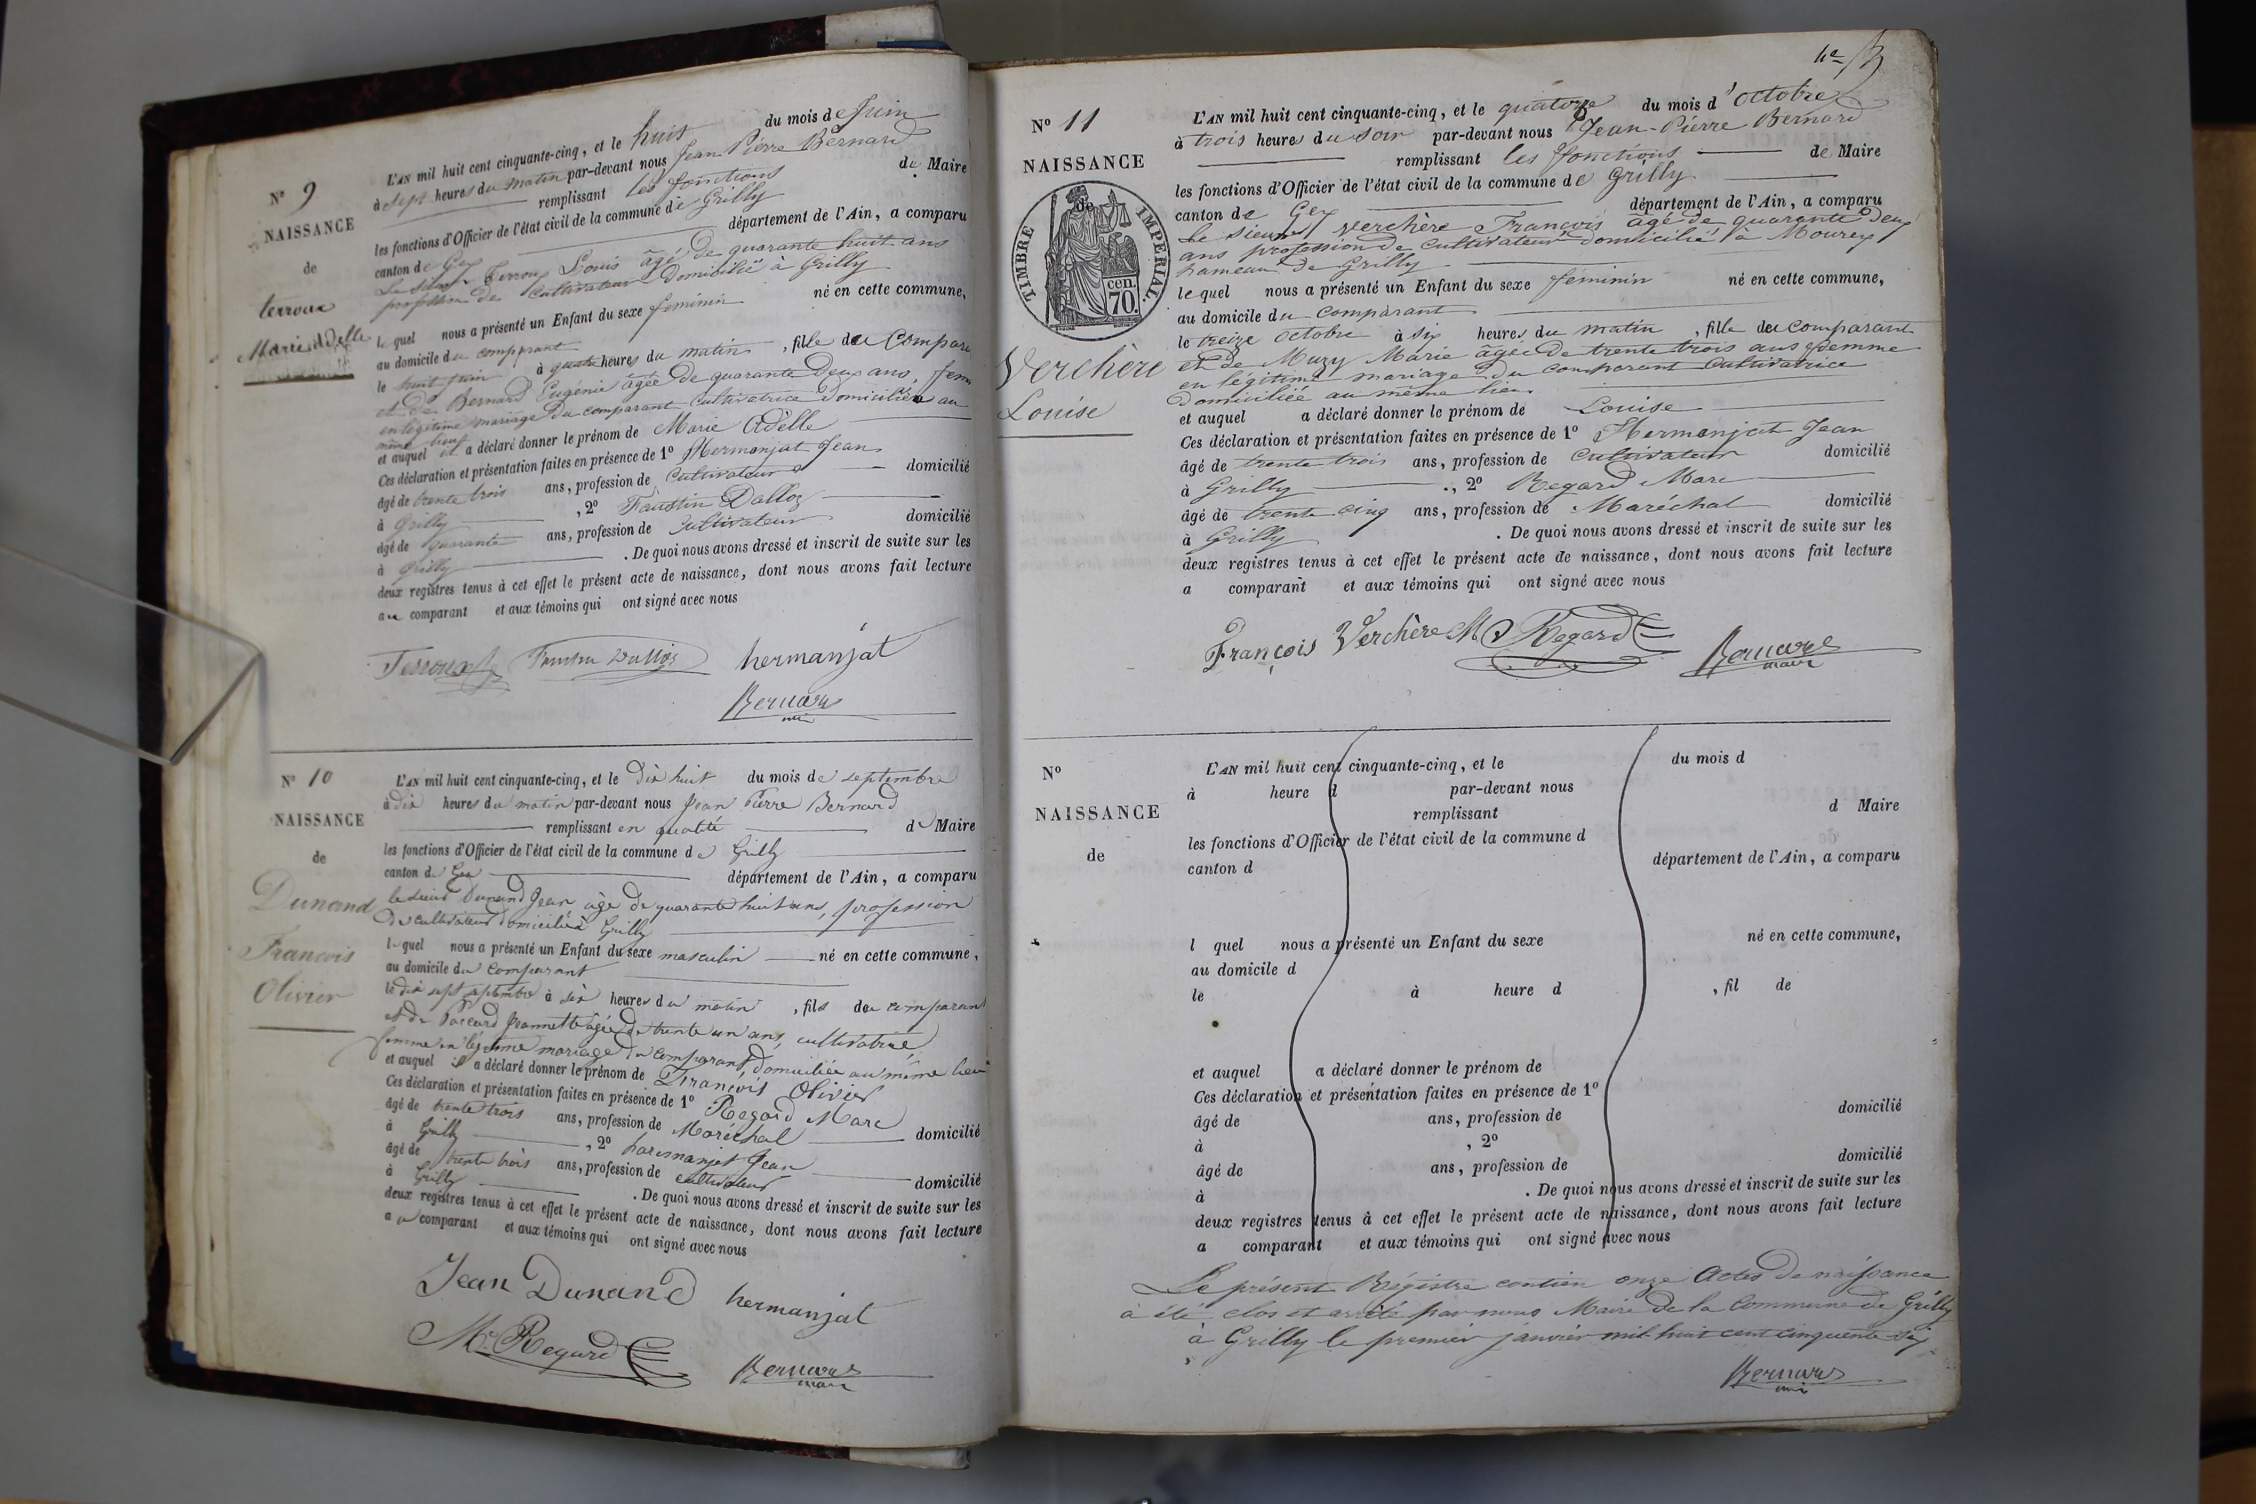 N° 9
NAISSANCE
de
Terroux
Marie Adelle
L'AN mil huit cent cinquante-cinq, et le huit du mois de Juin
à sept heures du matin par-devant nous Jean Pierre Bernard
remplissant les fonctions de Maire
les fonctions d'Officier de l'état civil de la commune de Grilly
canton de Gex département de l'Ain, a comparu
Le Sieur Terroux Louis âgé de quarante huit ans
profession de Cultivateur Domicilié à Grilly
le quel nous a présenté un Enfant du sexe feminin né en cette commune,
au domicile du comparant
le huit Juin à quatre heures du matin, fille du Compara
et de Bernard Eugénie âgée de quarante Deux ans, fem
en légitime mariage du comparant Cultivatrice domiciliée au
même lieu
et auquel il a déclaré donner le prénom de Marie Adèlle
Ces déclaration et présentation faites en présence de 1° Hermanjat Jean
âgé de trente trois ans, profession de Cultivateur domicilié
à Grilly, 2° Faustin Dalloz
âgé de quarante ans, profession de Cultivateur domicilié
à Grilly. De quoi nous avons dressé et inscrit de suite sur les
deux registres tenus à cet effet le présent acte de naissance, dont nous avons fait lecture
au comparant et aux témoins qui ont signé avec nous
Terroux Faustin Dalloz hermanjat
Bernard
N° 10
NAISSANCE
de
Dunand
François
Olivier
L'AN mil huit cent cinquante-cinq, et le dix huit du mois de septembre
à dix heures du matin par-devant nous Jean Pierre Bernard
remplissant en qualité de Maire
les fonctions d'Officier de l'état civil de la commune de Grilly
canton de Gex département de l'Ain, a comparu
le sieur Dunand Jean âgé de quarante huit ans, profession
De cultivateur domicilié à Grilly
lequel nous a présenté un Enfant du sexe masculin né en cette commune,
au domicile du comparant
le dix sept septembre à six heures du matin, fils du comparant
et de Paccard Jeannette âgée de trente un ans, cultivatrice,
femme en légitime mariage du comparant, domiciliée au même lieu
et auquel il a déclaré donner le prénom de François Olivier
Ces déclaration et présentation faites en présence de 1° Regard Marc
âgé de trente trois ans, profession de Maréchal domicilié
à Grilly, 2° harmanjat Jean
âgé de trente trois ans, profession de cultivateur domicilié
à Grilly. De quoi nous avons dressé et inscrit de suite sur les
deux registres tenus à cet effet le présent acte de naissance, dont nous avons fait lecture
au comparant et aux témoins qui ont signé avec nous
Jean Dunand hermanjat
M Regard Bernard
maire
N° 11
NAISSANCE
de
TIMBRE IMPERIAL.
cen.
70.
Verchère
Louise
L'AN mil huit cent cinquante-cinq, et le quatorze du mois d'octobre
à trois heures du soir par-devant nous Jean-Pierre Bernard
remplissant les fonctions de Maire
les fonctions d'Officier de l'état civil de la commune de Grilly
canton de Gex département de l'Ain, a comparu
Le sieur Verchère François âgé de quarante deux
ans profession de Cultivateur domicilié à Mourex
hameau de Grilly
lequel nous a présenté un Enfant du sexe féminin né en cette commune,
au domicile du comparant
le treize octobre à six heures du matin, fille du comparant
et de Muzy Marie âgée de trente trois ans femme
en légitime mariage du comparant Cultivatrice
Domiciliée au même lieu
et auquel a déclaré donner le prénom de Louise
Ces déclaration et présentation faites en présence de 1° Hermanjat Jean
âgé de trente trois ans, profession de Cultivateur domicilié
à Grilly, 2° Regard Marc
âgé de trente cinq ans, profession de Maréchal domicilié
à Grilly. De quoi nous avons dressé et inscrit de suite sur les
deux registres tenus à cet effet le présent acte de naissance, dont nous avons fait lecture
a comparant et aux témoins qui ont signé avec nous
François Verchère M Regard Bernard
maire
N°
NAISSANCE
de
L'AN mil huit cent cinquante-cinq, et le du mois d
à heure d par-devant nous
remplissant d Maire
les fonctions d'Officier de l'état civil de la commune d
canton d département de l'Ain, a comparu
l quel nous a présenté un Enfant du sexe né en cette commune,
au domicile d
le à heure d, fil de
et auquel a déclaré donner le prénom de
Ces déclaration et présentation faites en présence de 1°
âgé de ans, profession de domicilié
à, 2°
âgé de ans, profession de domicilié
à. De quoi nous avons dressé et inscrit de suite sur les
deux registres tenus à cet effet le présent acte de naissance, dont nous avons fait lecture
a comparant et aux témoins qui ont signé avec nous
Le présent Régistre contien onze Actes de naissance
à été clos et arrêté par nous Maire de la Commune de Grilly
à Grilly le premier janvier mil huit cent cinquante six
Bernard